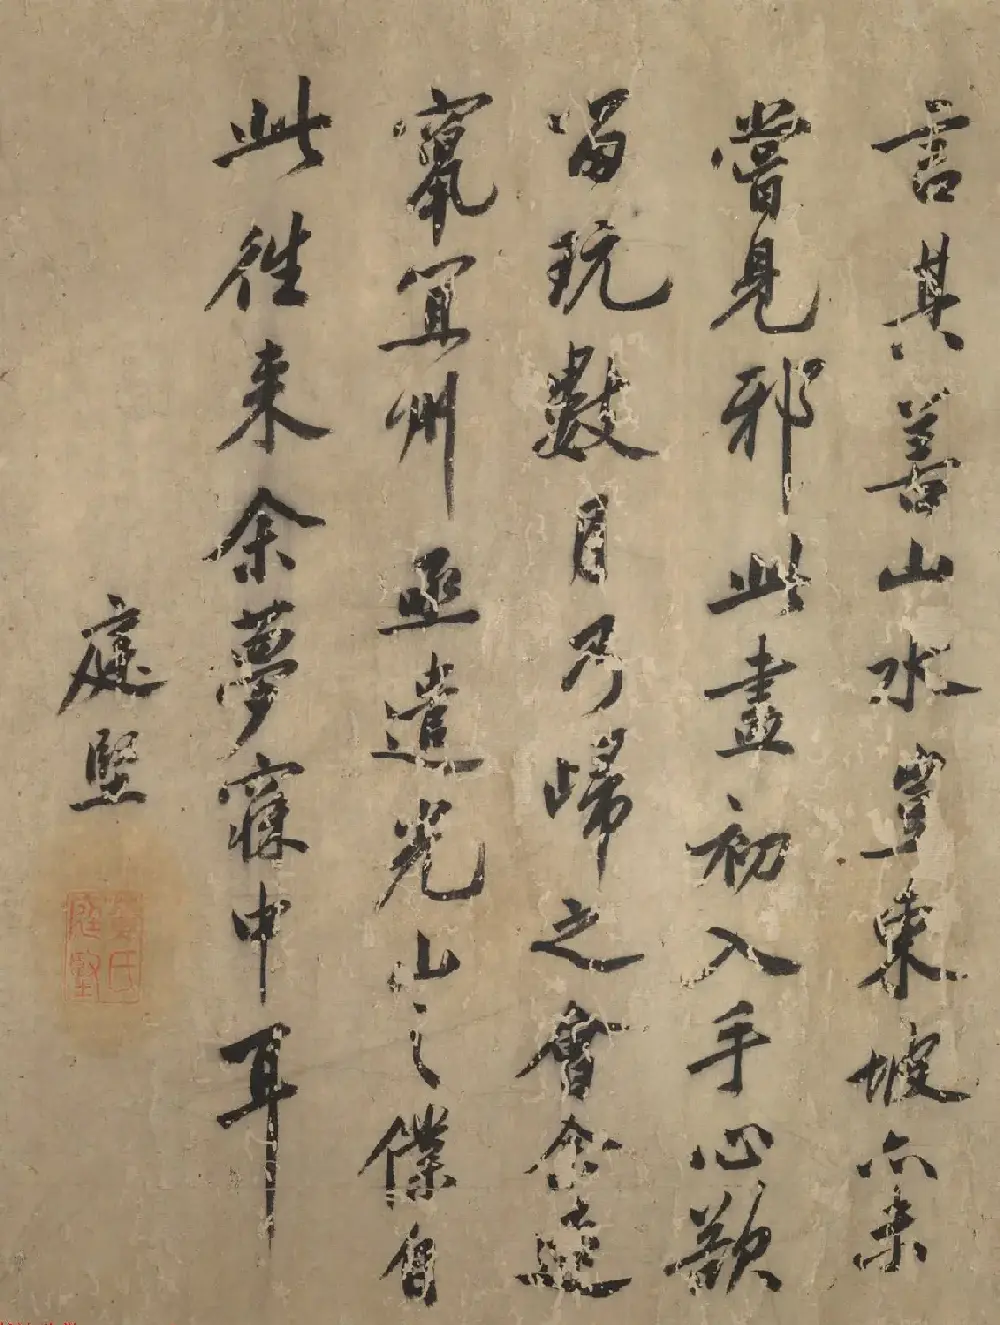 言其善山水豈東坡亦未
嘗見邪此畫初入手心欲
留玩數月乃歸之會余遠
竄宜州亟遣光山之僕自
此往來余夢寐中耳
庭堅
黃氏
庭堅